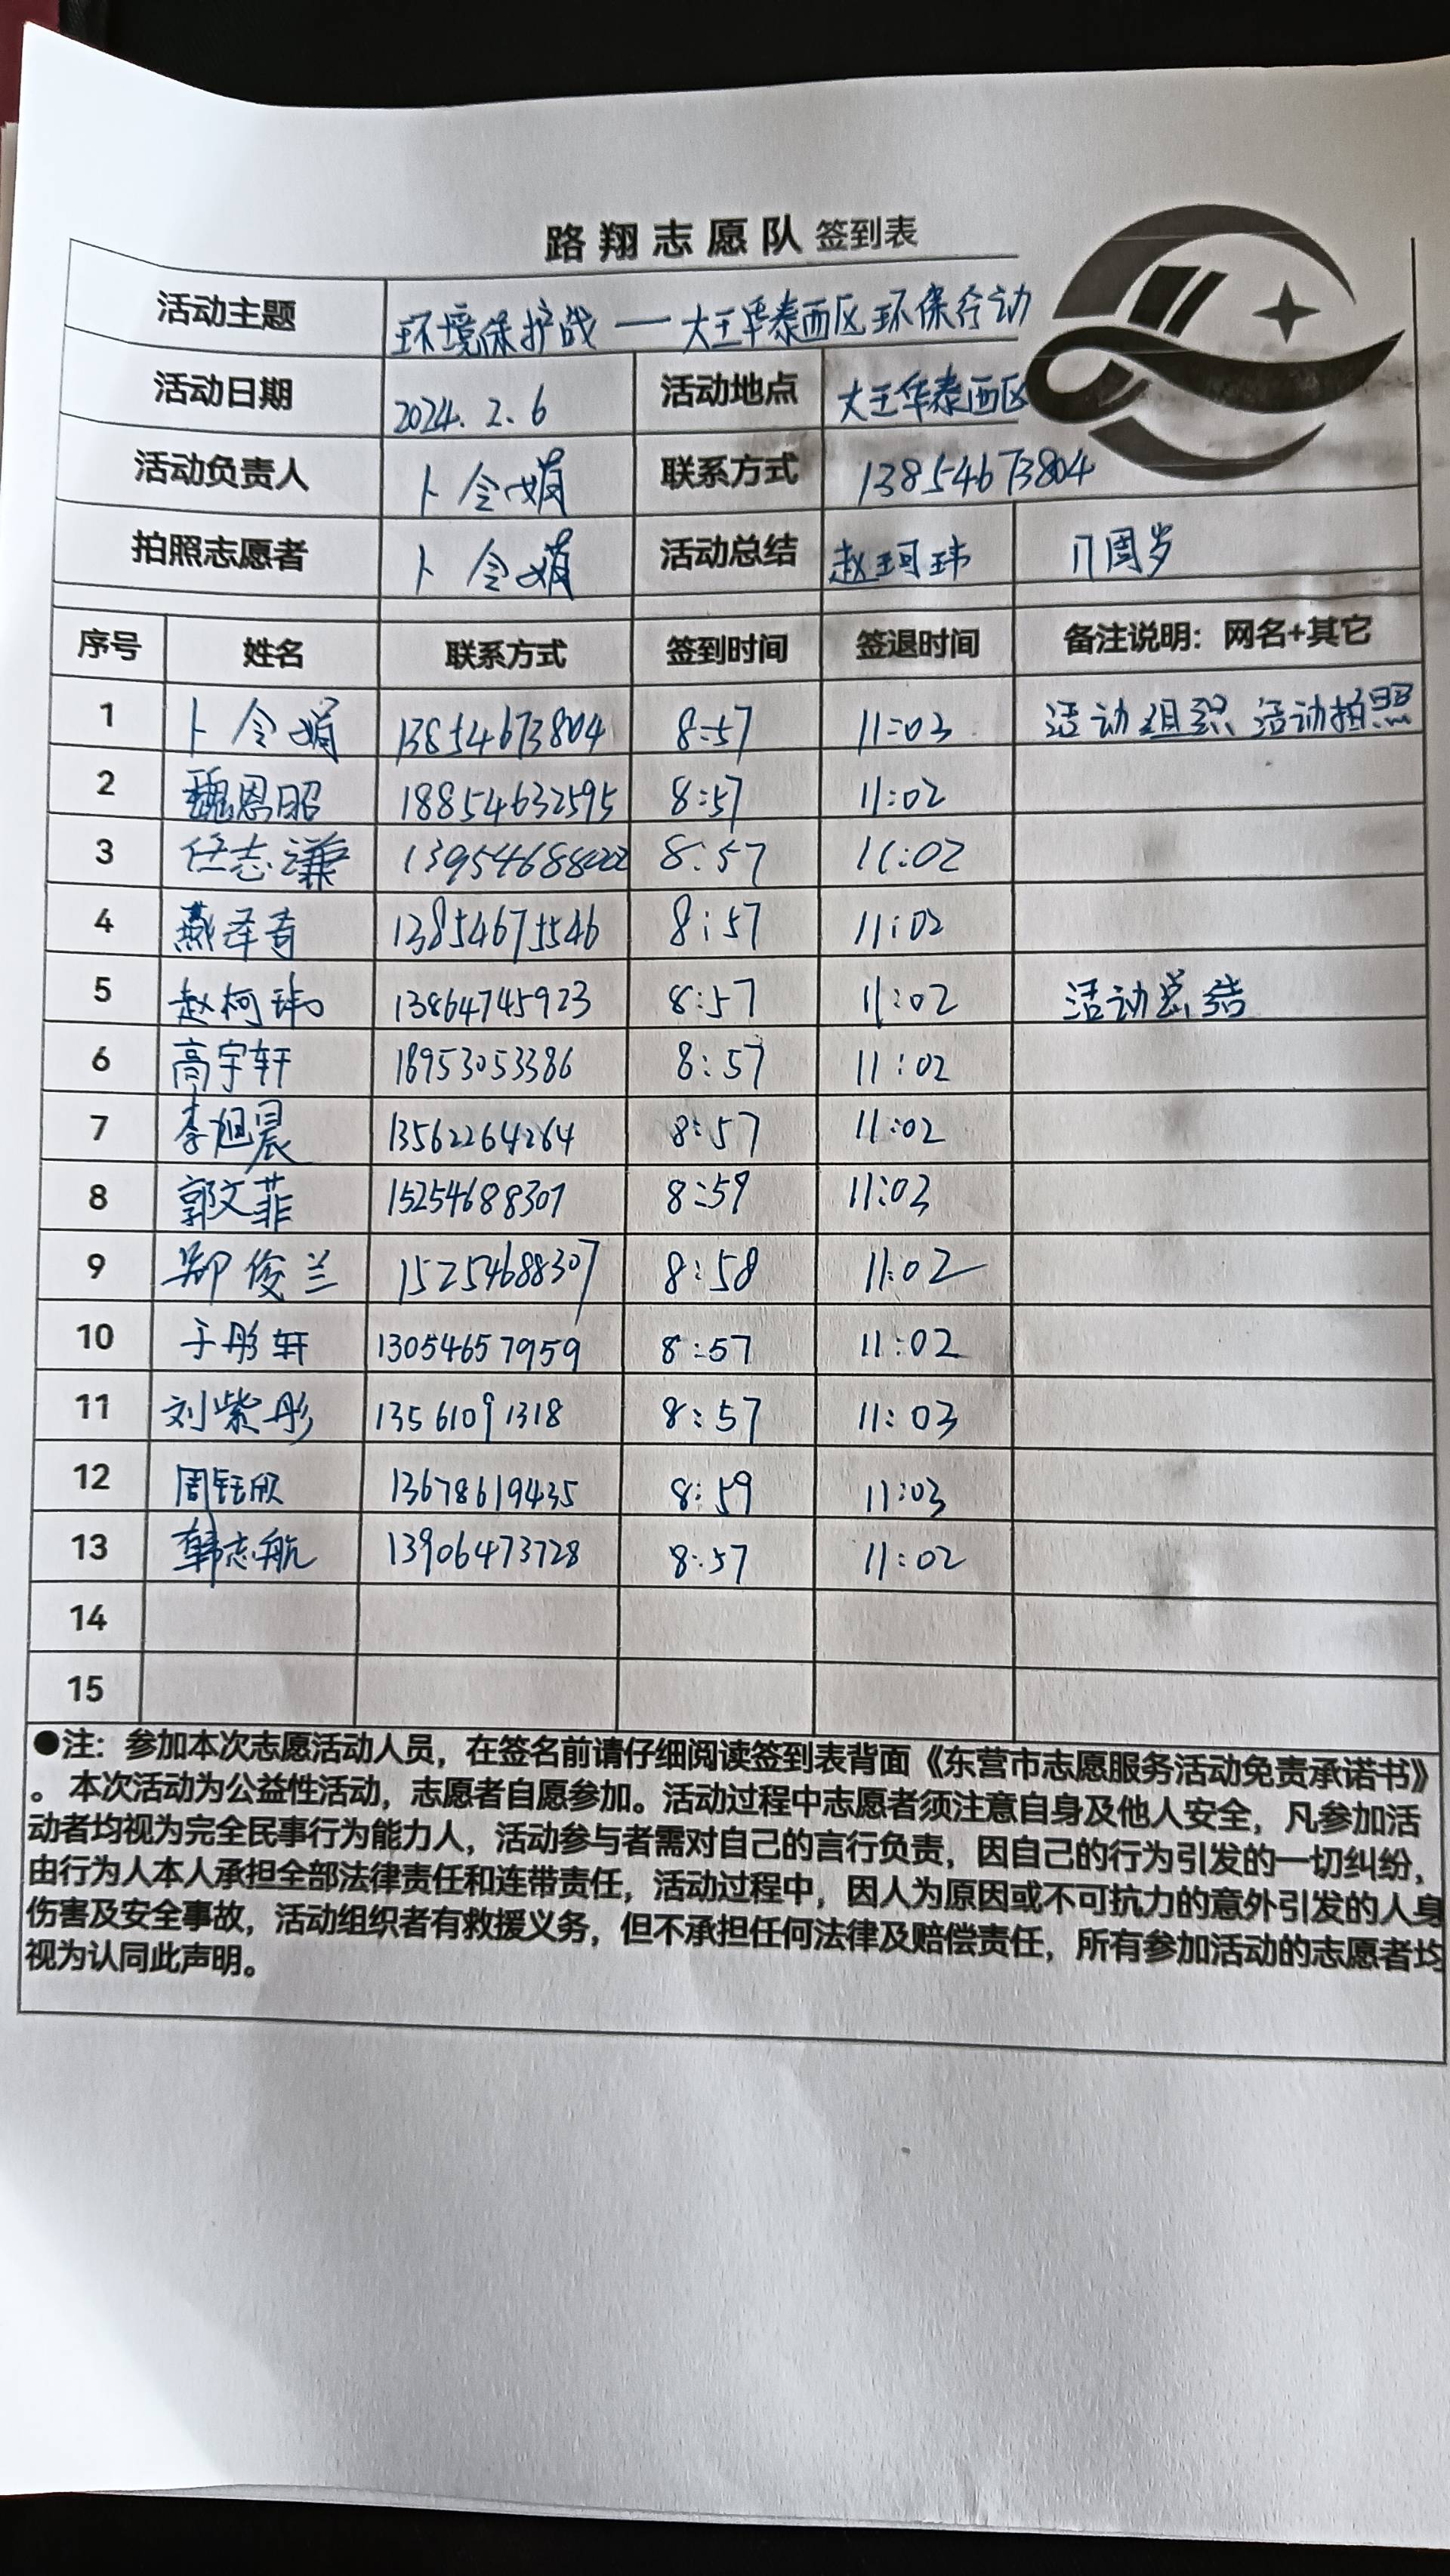 路翔志愿队 签到表
活动主题 环境保护战——大王华泰西区环保行动
活动日期 2024.2.6 活动地点 大王华泰西区
活动负责人 卜令娟 联系方式 13854673804
拍照志愿者 卜令娟 活动总结 赵珂玮 11周岁
序号 姓名 联系方式 签到时间 签退时间 备注说明：网名+其它
1 卜令娟 13854673804 8:57 11:03 活动组织 活动拍照
2 魏恩昭 18854632595 8:57 11:02
3 任志谦 8:57 11:02
4 燕泽 13854675546 8:57 11:02
5 赵柯玮 13864745923 8:57 11:02 活动总结
6 高宇轩 18953053386 8:57 11:02
7 李旭晨 13562264264 8:57 11:02
8 郭文菲 15254688307 8:59 11:03
9 俊兰 15254688307 8:58 11:02
10 于彤轩 13054657959 8:57 11:02
11 刘紫彤 13561091318 8:57 11:03
12 周钰欣 13678619435 8:59 11:03
13 韩志航 13906473728 8:57 11:02
14
15
●注：参加本次志愿活动人员，在签名前请仔细阅读签到表背面《东营市志愿服务活动免责承诺书》
。本次活动为公益性活动，志愿者自愿参加。活动过程中志愿者须注意自身及他人安全，凡参加活
动者均视为完全民事行为能力人，活动参与者需对自己的言行负责，因自己的行为引发的一切纠纷，
由行为人本人承担全部法律责任和连带责任，活动过程中，因人为原因或不可抗力的意外引发的人身
伤害及安全事故，活动组织者有救援义务，但不承担任何法律及赔偿责任，所有参加活动的志愿者均
视为认同此声明。